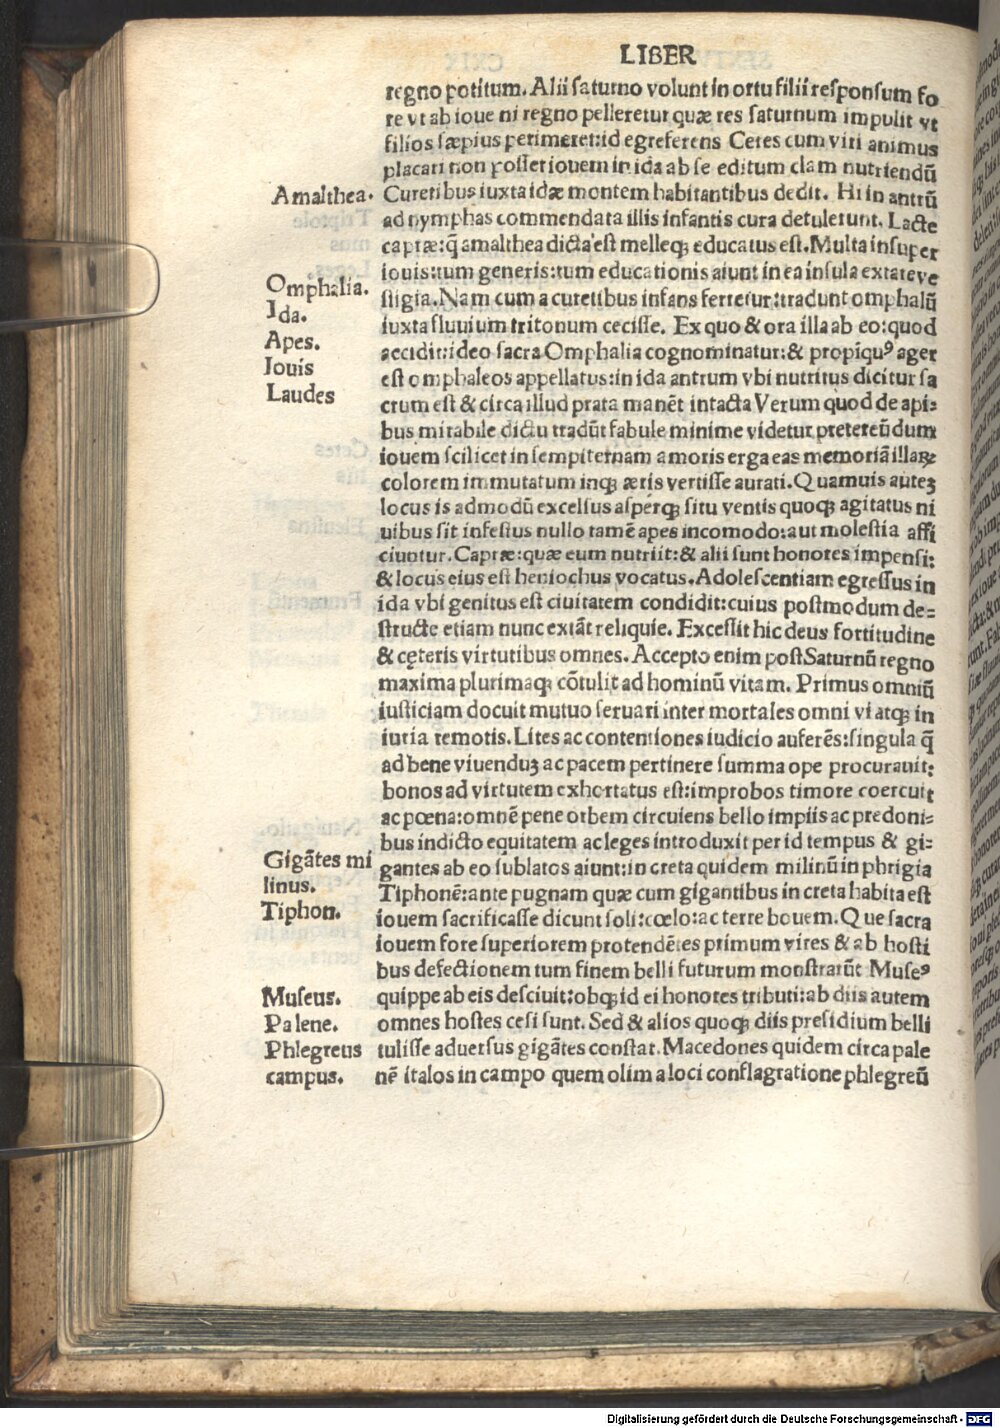 LIBER
regno potitum. Alii saturno volunt in ortu filii responsum fo
re vt ab ioue ni regno pelleretur quæ res saturnum impulit vt
filios sæpius perimeret:id egreferens Ceres cum viri animus
placari non posset iouem in ida ab se editum clam nutriendū
Amalthea. Curetibus iuxta idæ montem habitantibus dedit. Hi in antrū
ad nymphas commendata illis infantis cura detulerunt. Lacte
capræ:q̄ amalthea dicta est melleqꝫ educatus est. Multa insuper
iouis:tum generis:tum educationis aiunt in ea insula extare ve
Omphalia. stigia. Nam cum a curetibus infans ferretur:tradunt omphalū
Ida. iuxta fluuium tritonum cecisse. Ex quo & ora illa ab eo:quod
Apes. accidit:ideo sacra Omphalia cognominatur:& propīquꝰ ager
Iouis est omphaleos appellatus:in ida antrum vbi nutritus dicitur sa
Laudes crum est & circa illud prata manēt intacta Verum quod de api⸗
bus mirabile dictu tradūt fabule minime videtur pretereūdum
iouem scilicet in sempiternam amoris erga eas memoriā illaꝝ
colorem immutatum inqꝫ æris vertisse aurati. Quamuis auteꝫ
locus is admodū excelsus asperqꝫ situ ventis quoqꝫ agitatus ni
uibus sit infestus nullo tamē apes incomodo:aut molestia affi
ciuntur. Capræ:quæ eum nutriit:& alii sunt honores impensi:
& locus eius est heniochus vocatus. Adolescentiam egressus in
ida vbi genitus est ciuitatem condidit:cuius postmodum de⸗
structe etiam nunc extāt reliquie. Excessit hic deus fortitudine
& cęteris virtutibus omnes. Accepto enim post Saturnū regno
maxima plurimaqꝫ cōtulit ad hominū vitam. Primus omniū
iusticiam docuit mutuo seruari inter mortales omni vi atqꝫ in
iuria remotis. Lites ac contentiones iudicio auferēs:singula q̄
ad bene viuenduꝫ ac pacem pertinere summa ope procurauit:
bonos ad virtutem exhortatus est:improbos timore coercuit
ac pœna:omnē pene orbem circuiens bello impiis ac predoni⸗
bus indicto equitatem ac leges introduxit per id tempus & gi⸗
Gigātes mi gantes ab eo sublatos aiunt:in creta quidem milinū in phrigia
linus. Tiphonē:ante pugnam quæ cum gigantibus in creta habita est
Tiphon. iouem sacrificasse dicunt soli:cœlo:ac terre bouem. Que sacra
iouem fore superiorem protendētes primum vires & ab hosti
bus defectionem tum finem belli futurum monstrarūt Museꝰ
Museus. quippe ab eis desciuit:obqꝫ id ei honores tributi:ab diis autem
Palene. omnes hostes cesi sunt. Sed & alios quoqꝫ diis presidium belli
Phlegreus tulisse aduersus gigātes constat. Macedones quidem circa pale
campus. nē italos in campo quem olim a loci conflagratione phlegreū
Digitalisierung gefördert durch die Deutsche Forschungsgemeinschaft - DFG